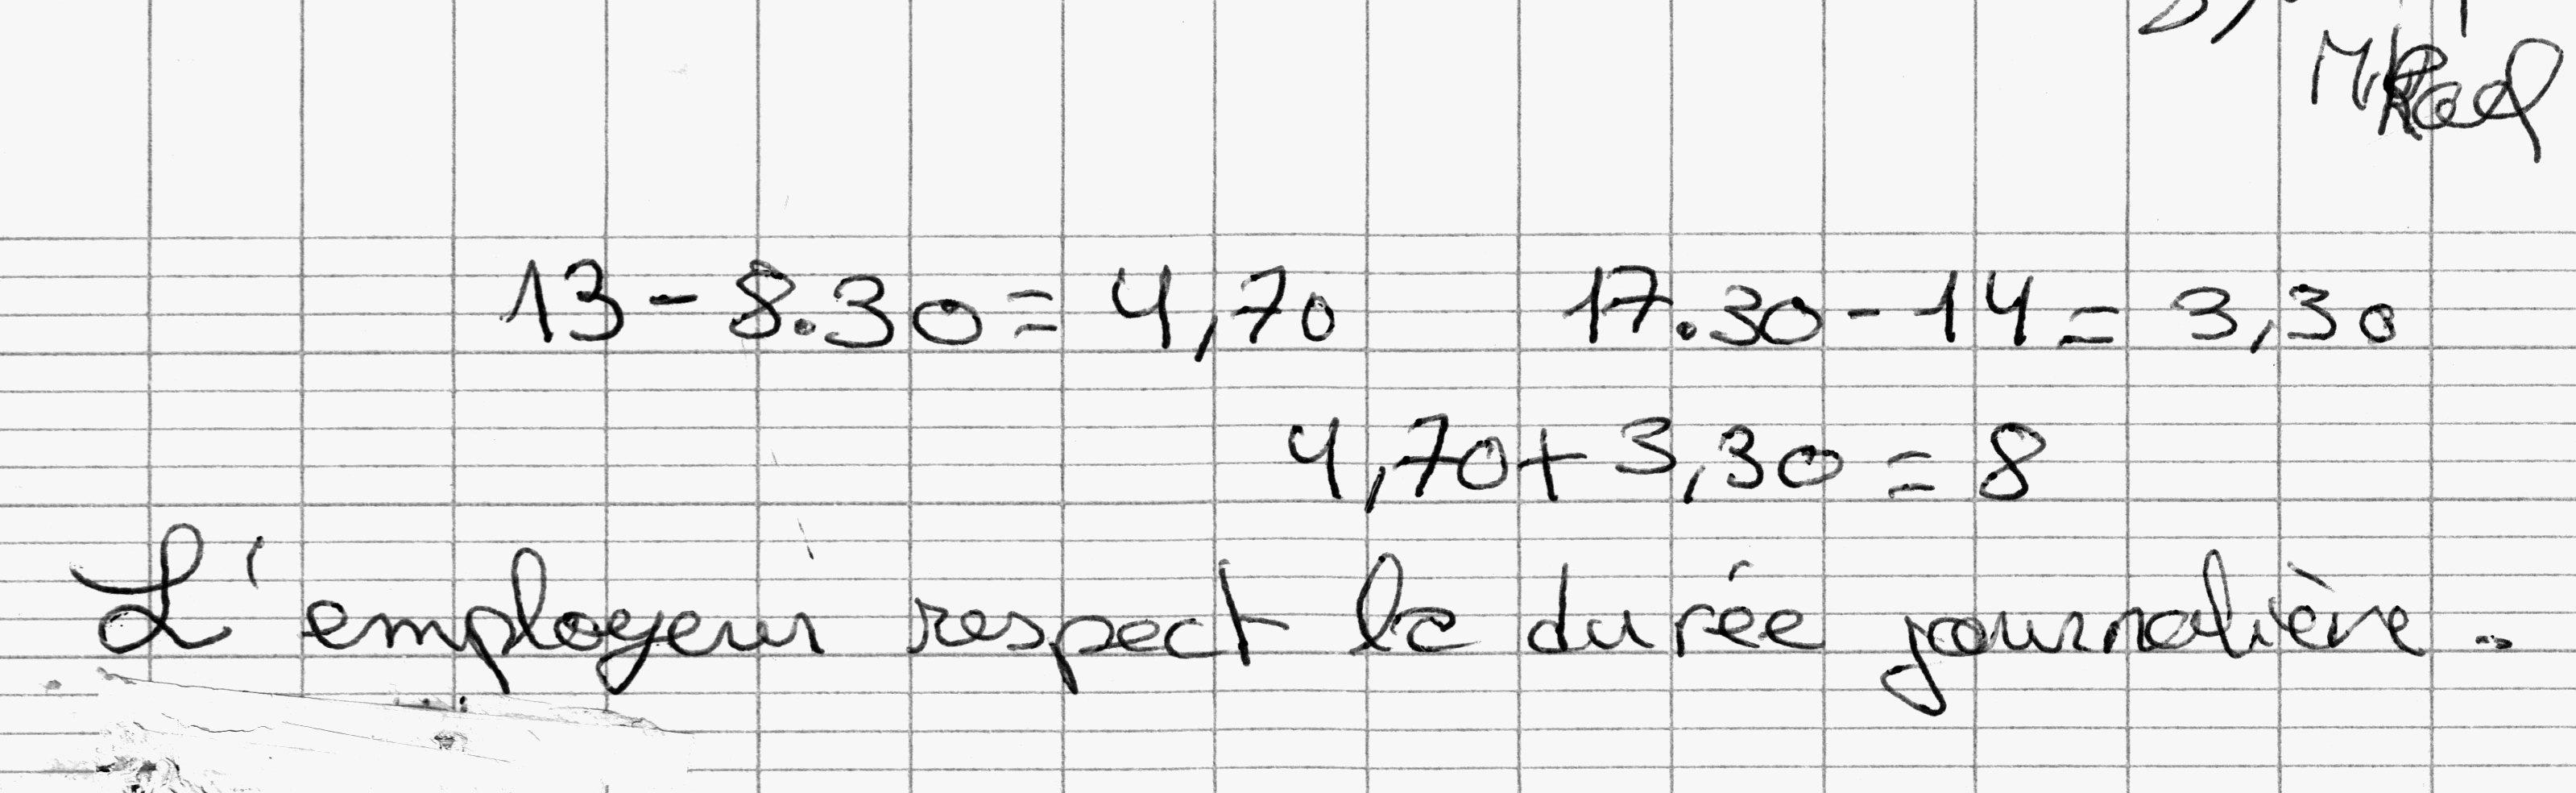 13 - 8.30 = 4,70 17.30 - 14 = 3,30
4,70 + 3,30 = 8
L'employeur respect la durée journalière.